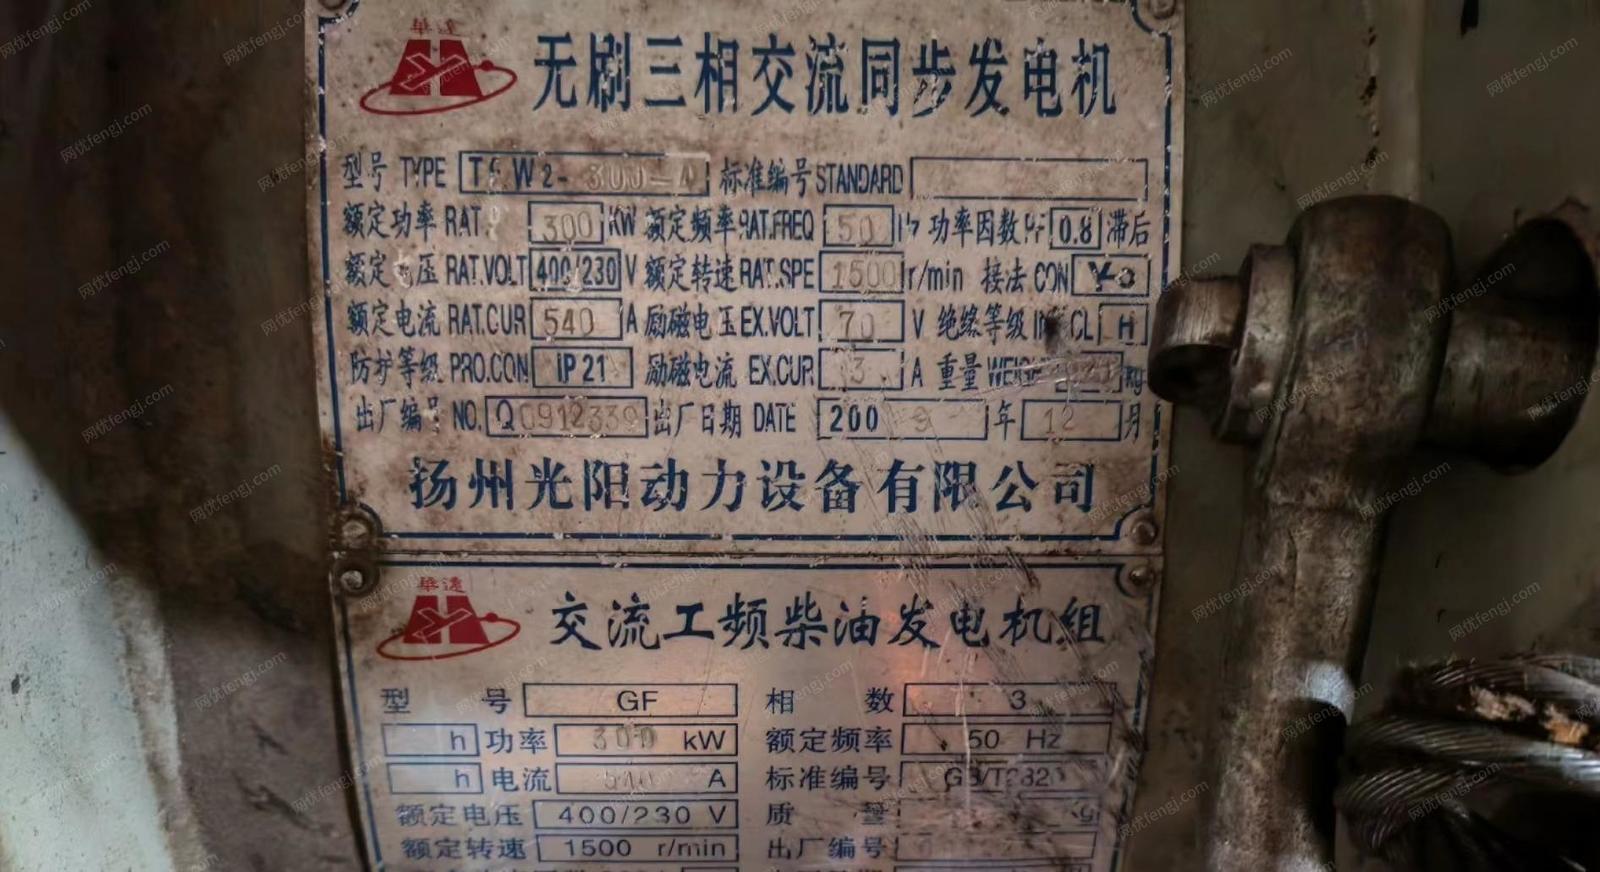 華遠
无刷三相交流同步发电机
型号 TYPE T W2-300-4 标准编号 STANDARD
额定功率 RAT. 300 KW 额定频率 RAT.FREQ 50 功率因数 0.8 滞后
额定电压 RAT.VOLT 400/230 V 额定转速 RAT.SPE 1500 r/min 接法 CON
额定电流 RAT.CUR 540 A 励磁电压 EX.VOLT 70 V 绝缘等级 CL H
防护等级 PRO.CON IP21 励磁电流 EX.CUR 3 A 重量 kg
出厂编号 NO. Q0912339 出厂日期 DATE 200 9 年 12 月
扬州光阳动力设备有限公司
華遠
交流工频柴油发电机组
型 号 GF 相 数 3
h 功率 300 kW 额定频率 50 Hz
h 电流 A 标准编号 GB/T2820
额定电压 400/230 V 质 量
额定转速 1500 r/min 出厂编号
网优fengj.com